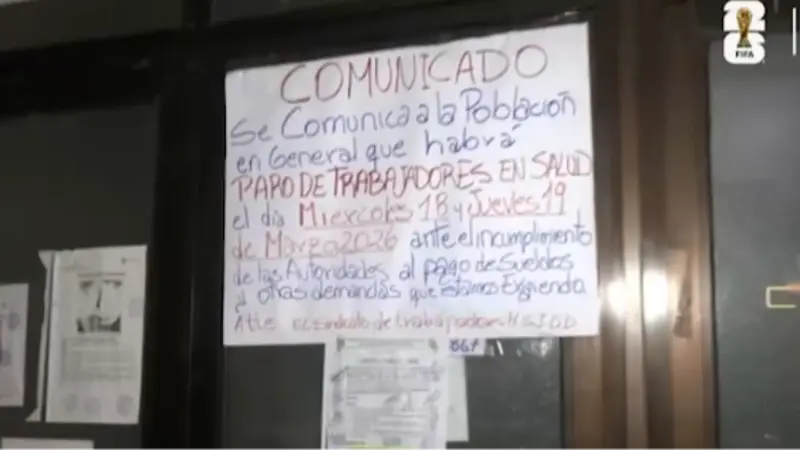 COMUNICADO
Se Comunica a la Población
en General que habrá
PARO DE TRABAJADORES EN SALUD
el día Miercoles 18 y Jueves 19
de Marzo 2026 ante el incumplimiento
de las Autoridades al pago de Sueldos
y otras demandas que estamos Exigiendo
Atte. El Sindicato de trabajadores H.S.J.D.D
26
FIFA